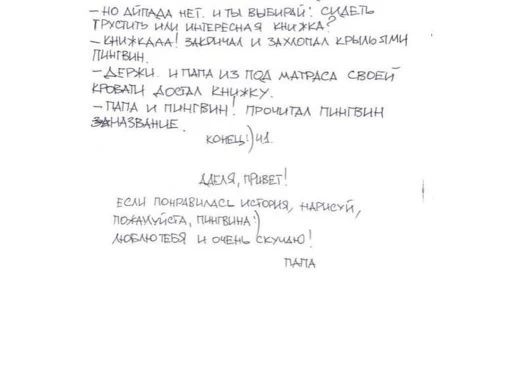 – НО АЙПАДА НЕТ. И ТЫ ВЫБИРАЙ: СИДЕТЬ
ГРУСТИТЬ ИЛИ ИНТЕРЕСНАЯ КНИЖКА?
– КНИЖКДАА! ЗАКРИЧАЛ И ЗАХЛОПАЛ КРЫЛЬЯМИ
ПИНГВИН.
– ДЕРЖИ. И ПАПА ИЗ ПОД МАТРАСА СВОЕЙ
КРОВАТИ ДОСТАЛ КНИЖКУ.
– ПАПА И ПИНГВИН! ПРОЧИТАЛ ПИНГВИН
НАЗВАНИЕ.
КОНЕЦ:) Ч1.
АДЕЛЯ, ПРИВЕТ!
ЕСЛИ ПОНРАВИЛАСЬ ИСТОРИЯ, НАРИСУЙ,
ПОЖАЛУЙСТА, ПИНГВИНА:)
ЛЮБЛЮ ТЕБЯ И ОЧЕНЬ СКУЧАЮ!
ПАПА